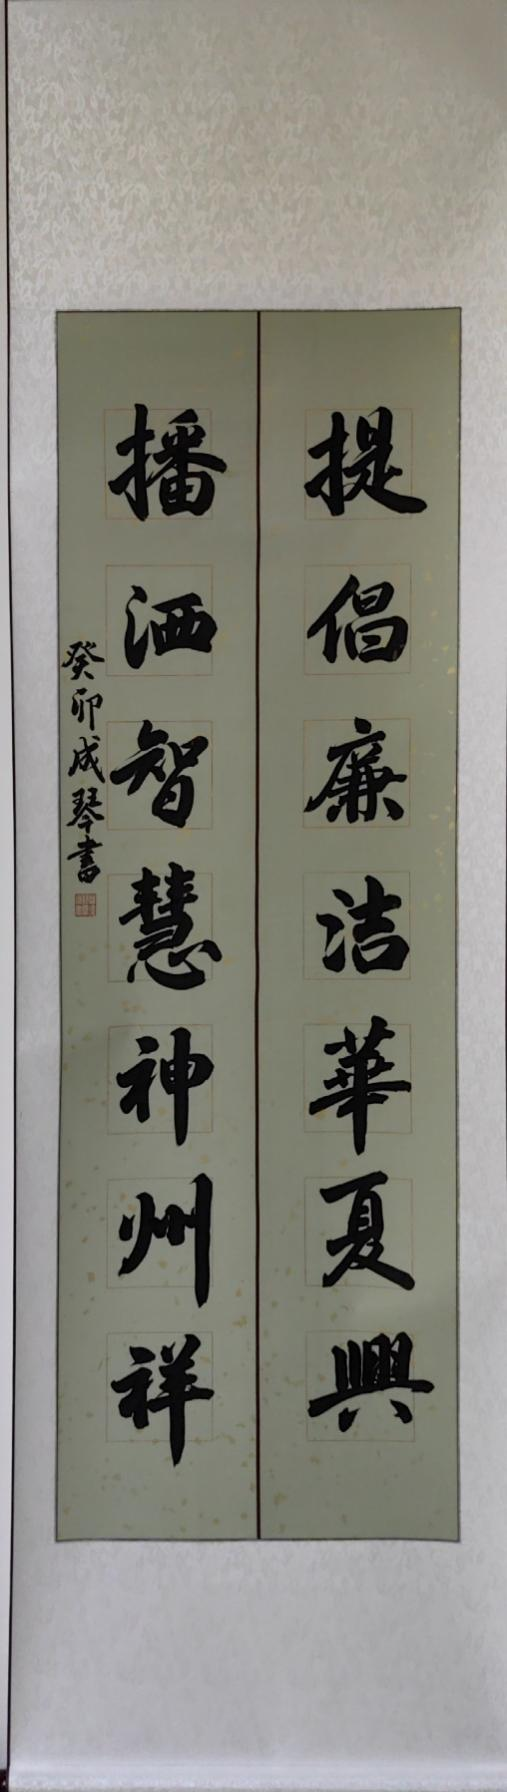 提倡廉洁華夏興
播洒智慧神州祥
癸卯成琴書